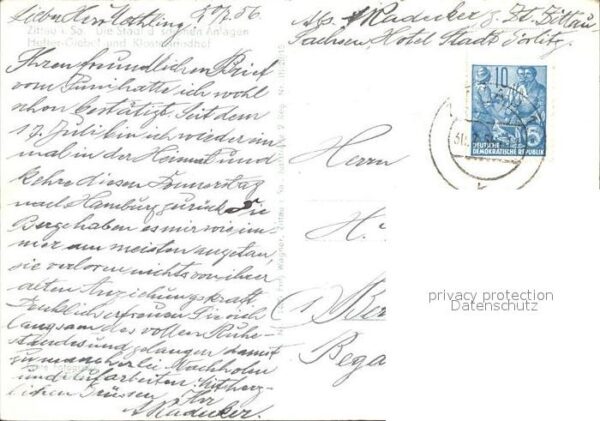 Lieber Herr Nothling, 30/7. 56
Zittau i. Sa. Die Stadt d. schönen Anlagen
Ihren freundlichen Brief
vom Juni hatte ich wohl
schon bestätigt. Seit dem
17. Juli bin ich wieder ein
mal in der Heimat und
kehre diesen Donnerstag
nach Hamburg zurück. Die
Berge haben es mir wie im-
mer am meisten angetan,
sie verloren nichts von ihrer
alten Anziehungskraft.
Hoffentlich erfreuen Sie sich
langsam des vollen Ruhe-
standes und gelangen damit
zu mancherlei Nachholen
und Aufarbeiten. Mit herz-
lichen Grüssen Ihr
A. Raducker.
Abs. Raducker z. Zt. Zittau
Sachsen, Hotel Stadt Görlitz
10
5
DEUTSCHE
DEMOKRATISCHE REPUBLIK
Herrn
H.
(1) Ber
Bega
privacy protection
Datenschutz